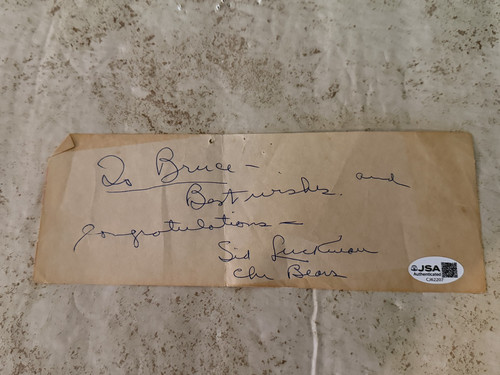 To Bruce –
Best wishes and
Congratulations –
Sid Luckman
Chi Bears
JSA
Authenticated